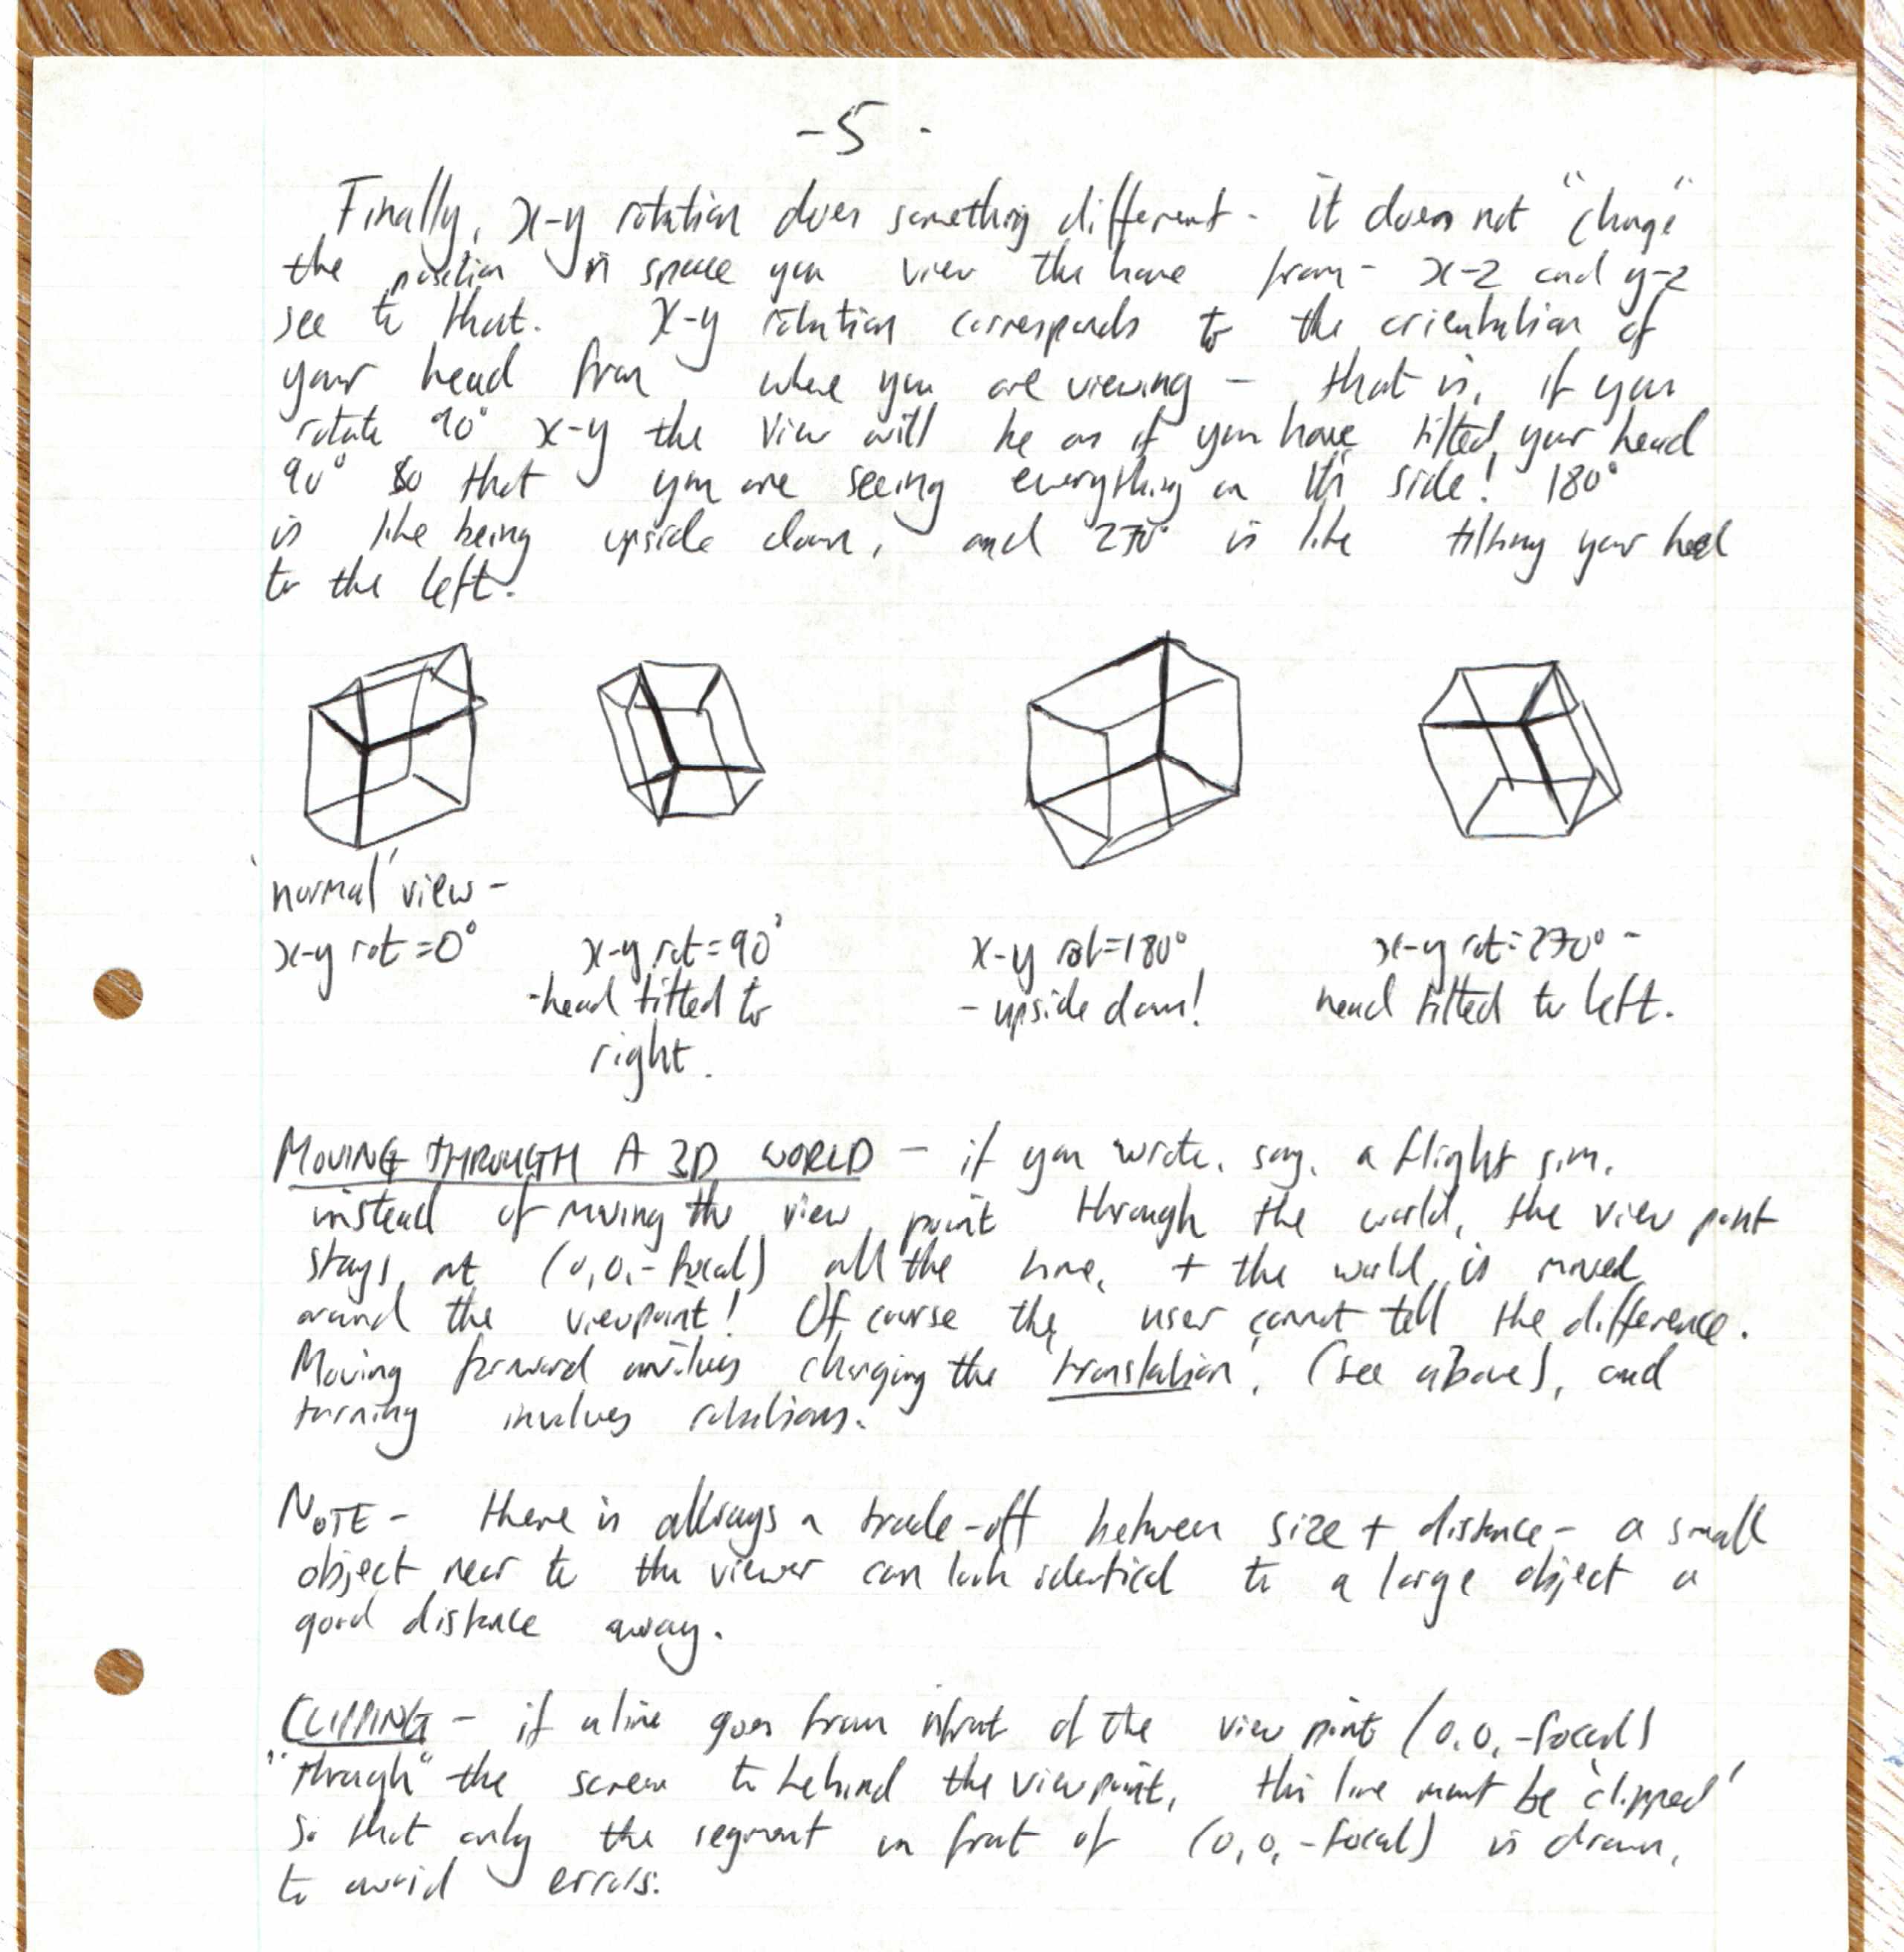 -5-
Finally, x-y rotation does something different - it does not "change"
the position in space you view the house from - x-z and y-z
see to that. x-y rotation corresponds to the orientation of
your head from where you are viewing - that is, if you
rotate 90° x-y the view will be as if you have tilted your head
90° so that you are seeing everything on its side! 180°
is like being upside down, and 270° is like tilting your head
to the left.
'normal' view -
x-y rot = 0°
x-y rot = 90°
- head tilted to
right.
x-y rot = 180°
- upside down!
x-y rot = 270° -
head tilted to left.
MOVING THROUGH A 3D WORLD - if you wrote, say, a flight sim,
instead of moving the view point through the world, the view point
stays at (0,0,-focal) all the time, + the world is moved
around the viewpoint! Of course the user cannot tell the difference.
Moving forward involves changing the 'translation', (see above), and
turning involves rotations.
NOTE - there is always a trade-off between size + distance - a small
object near to the viewer can look identical to a large object a
good distance away.
CLIPPING - if a line goes from infront of the view point (0,0,-focal)
"through" the screen to behind the viewpoint, this line must be 'clipped'
so that only the segment in front of (0,0,-focal) is drawn,
to avoid errors.